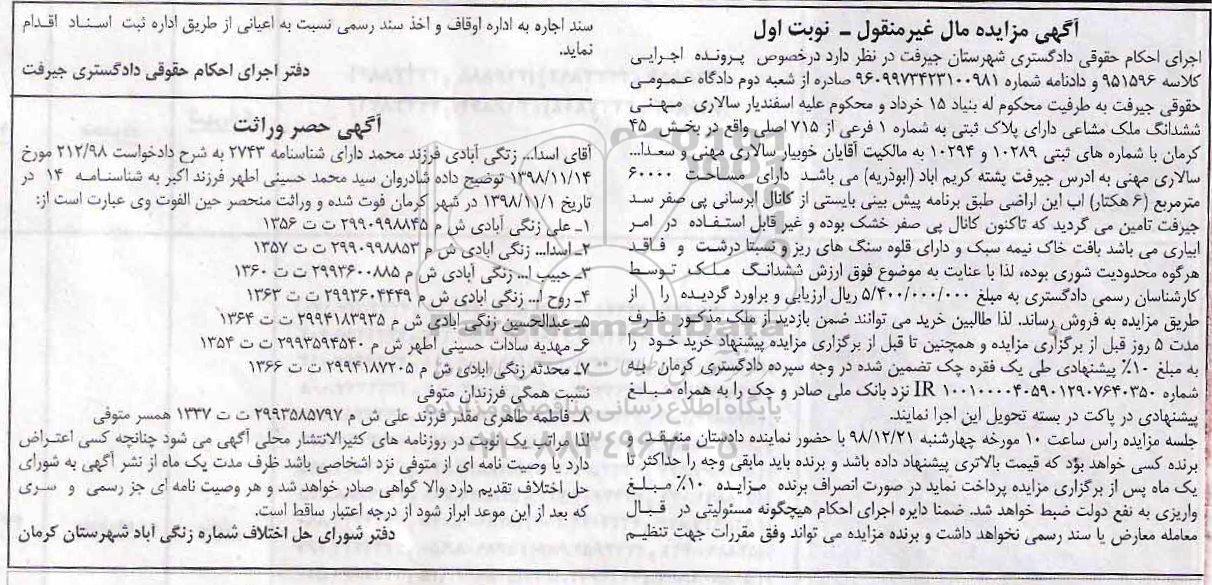 آگهی مزایده مال غیرمنقول ـ نوبت اول
اجرای احکام حقوقی دادگستری شهرستان جیرفت در نظر دارد درخصوص پرونده اجرایی
کلاسه ۹۵۱۵۹۶ و دادنامه شماره ۹۶۰۹۹۷۳۴۲۳۱۰۰۹۸۱ صادره از شعبه دوم دادگاه عمومی
حقوقی جیرفت به طرفیت محکوم له بنیاد ۱۵ خرداد و محکوم علیه اسفندیار سالاری مهنی
ششدانگ ملک مشاعی دارای پلاک ثبتی به شماره ۱ فرعی از ۷۱۵ اصلی واقع در بخش ۴۵
کرمان با شماره های ثبتی ۱۰۲۸۹ و ۱۰۲۹۴ به مالکیت آقایان خوبیار سالاری مهنی و سعدا...
سالاری مهنی به ادرس جیرفت پشته کریم اباد (ابوذریه) می باشد دارای مساحت ۶۰۰۰۰
مترمربع (۶ هکتار) اب این اراضی طبق برنامه پیش بینی بایستی از کانال ابرسانی پی صفر سد
جیرفت تامین می گردید که تاکنون کانال پی صفر خشک بوده و غیر قابل استفاده در امر
ابیاری می باشد بافت خاک نیمه سبک و دارای قلوه سنگ های ریز و نسبتا درشت و فاقد
هرگوه محدودیت شوری بوده، لذا با عنایت به موضوع فوق ارزش ششدانگ ملک توسط
کارشناسان رسمی دادگستری به مبلغ ۵/۴۰۰/۰۰۰/۰۰۰ ریال ارزیابی و براورد گردیده را از
طریق مزایده به فروش رساند. لذا طالبین خرید می توانند ضمن بازدید از ملک مذکور ظرف
مدت ۵ روز قبل از برگزاری مزایده و همچنین تا قبل از برگزاری مزایده پیشنهاد خرید خود را
به مبلغ ۱۰٪ پیشنهادی طی یک فقره چک تضمین شده در وجه سپرده دادگستری کرمان به
شماره IR ۱۰۰۱۰۰۰۰۴۰۵۹۰۱۲۹۰۷۶۴۰۳۵۰ نزد بانک ملی صادر و چک را به همراه مبلغ
پیشنهادی در پاکت در بسته تحویل این اجرا نمایند.
جلسه مزایده راس ساعت ۱۰ مورخه چهارشنبه ۹۸/۱۲/۲۱ با حضور نماینده دادستان منعقد و
برنده کسی خواهد بود که قیمت بالاتری پیشنهاد داده باشد و برنده باید مابقی وجه را حداکثر تا
یک ماه پس از برگزاری مزایده پرداخت نماید در صورت انصراف برنده مزایده ۱۰٪ مبلغ
واریزی به نفع دولت ضبط خواهد شد. ضمنا دایره اجرای احکام هیچگونه مسئولیتی در قبال
معامله معارض یا سند رسمی نخواهد داشت و برنده مزایده می تواند وفق مقررات جهت تنظیم
سند اجاره به اداره اوقاف و اخذ سند رسمی نسبت به اعیانی از طریق اداره ثبت اسناد اقدام
نماید.
دفتر اجرای احکام حقوقی دادگستری جیرفت
آگهی حصر وراثت
آقای اسدا... زنگی آبادی فرزند محمد دارای شناسنامه ۲۷۴۳ به شرح دادخواست ۲۱۲/۹۸ مورخ
۱۳۹۸/۱۱/۱۴ توضیح داده شادروان سید محمد حسینی اطهر فرزند اکبر به شناسنامه ۱۴ در
تاریخ ۱۳۹۸/۱۱/۱ در شهر کرمان فوت شده و وراثت منحصر حین الفوت وی عبارت است از:
۱ـ علی زنگی آبادی ش م ۲۹۹۰۹۹۸۸۴۵ ت ت ۱۳۵۶
۲ـ اسدا... زنگی ابادی ش م ۲۹۹۰۹۹۸۸۵۳ ت ت ۱۳۵۷
۳ـ حبیب ا... زنگی آبادی ش م ۲۹۹۳۶۰۰۸۸۵ ت ت ۱۳۶۰
۴ـ روح ا... زنگی ابادی ش م ۲۹۹۳۶۰۴۴۴۹ ت ت ۱۳۶۳
۵ـ عبدالحسین زنگی ابادی ش م ۲۹۹۴۱۸۳۹۳۵ ت ت ۱۳۶۴
۶ـ مهدیه سادات حسینی اطهر ش م ۲۹۹۳۵۹۴۵۴۰ ت ت ۱۳۵۴
۷ـ محدثه زنگی ابادی ش م ۲۹۹۴۱۸۷۲۰۵ ت ت ۱۳۶۶
نشبت همگی فرزندان متوفی
۸ـ فاطمه طاهری مقدر فرزند علی ش م ۲۹۹۳۵۸۵۷۹۷ ت ت ۱۳۳۷ همسر متوفی
لذا مراتب یک نوبت در روزنامه های کثیرالانتشار محلی آگهی می شود چنانچه کسی اعتراض
دارد یا وصیت نامه ای از متوفی نزد اشخاصی باشد ظرف مدت یک ماه از نشر آگهی به شورای
حل اختلاف تقدیم دارد والا گواهی صادر خواهد شد و هر وصیت نامه ای جز رسمی و سری
که بعد از این موعد ابراز شود از درجه اعتبار ساقط است.
دفتر شورای حل اختلاف شماره زنگی آباد شهرستان کرمان
ParsNamadData
پایگاه اطلاع رسانی مناقصه و مزایده
۰۲۱-۸۸۳۴۹۶۷۰-۵